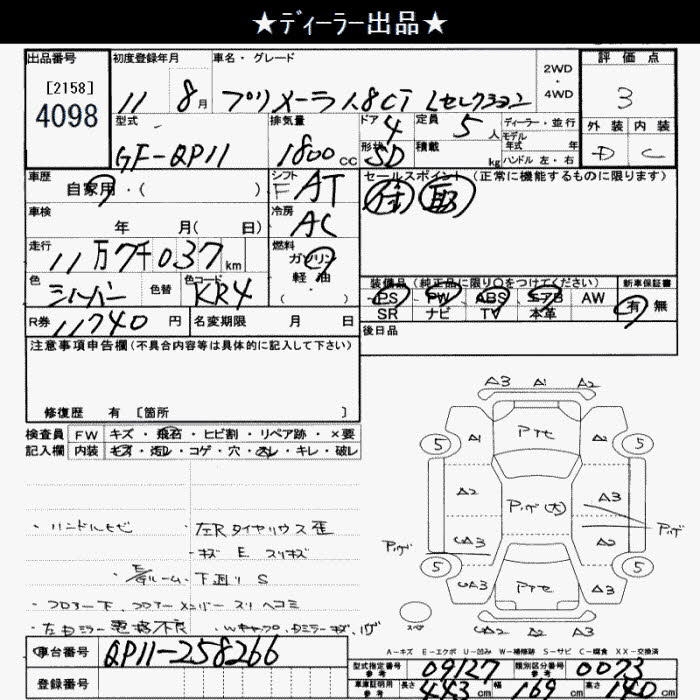 ★ディーラー出品★
出品番号
[2158]
4098
初度登録年月
11 8月
車名・グレード
プリメーラ 1.8CI Lセレクション
2WD
・
4WD
評価点
3
外装 内装
D C
型式
GF-QP11
排気量
1800cc
ドア 4
形状 SD
定員 5人
積載 kg
ディーラー・並行
モデル
年式 年
ハンドル 左・右
車歴
自家用・( )
シフト
F AT
セールスポイント(正常に機能するものに限ります)
車検
年 月( 日)
冷房
AC
走行
11万7千037km
燃料
ガソリン
軽・油
( ・ )
色
シルバー
色替
色コード
KR4
装備品(純正品に限り〇をつけてください)
PS PW ABS エアB AW
SR ナビ TV 本革
新車保証書
有 無
R券 11740円
名変期限 月 日
後日品
注意事項申告欄(不具合内容等は具体的に記入して下さい)
修復歴 有 [箇所 ]
検査員
記入欄
FW キズ・飛石・ヒビ割・リペア跡・×要
内装 キズ・汚レ・コゲ・穴・スレ・キレ・破レ
A3 A1 A2
5 A1 5
A2 Pッゲ(大) A3
Pッゲ A2 Pッゲ
5 5
A3
A2 A2 A3
・ハンドルヒビ
・左Rタイヤハウス歪
・キズ E スリキズ
ルーム・下廻り S
・フロアー下、フロアーメンバー スリ ヘコミ
・左右ミラー電格不良
A-キズ E-エクボ U-凹み W-補修跡 S-サビ C-腐食 XX-交換済
車台番号
QP11-258266
登録番号
型式指定番号
参考
09127
類別区分番号
参考
0073
車庫証明用
参考
長さ 443cm 幅 169cm 高さ 140cm